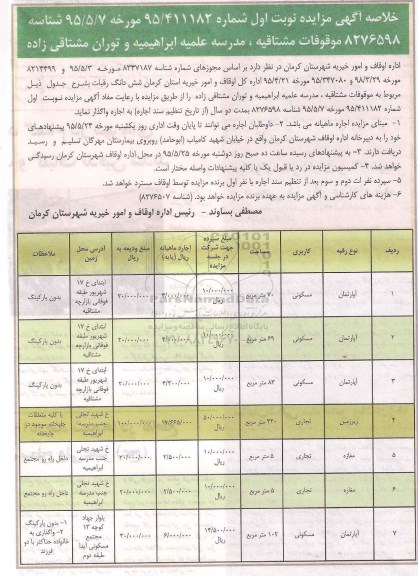 خلاصه آگهی مزایده نوبت اول شماره ۹۵/۴۱۱۱۸۲ مورخه ۹۵/۵/۷ شناسه
۸۲۷۶۵۹۸ موقوفات مشتاقیه ، مدرسه علمیه ابراهیمیه و توران مشتاقی زاده
اداره اوقاف و امور خیریه شهرستان کرمان در نظر دارد بر اساس مجوزهای شماره شناسه ۸۳۳۷۱۸۷ مورخه ۹۵/۵/۳ و ۸۲۱۳۴۹۹
مورخه ۹۸/۳/۲۹ و ۹۵/۳۴۷۰۸۰ مورخه ۹۵/۴/۲۱ اداره کل اوقاف و امور خیریه استان کرمان شش دانگ رقبات بشرح جدول ذیل
مربوط به موقوفات مشتاقیه ، مدرسه علمیه ابراهیمیه و توران مشتاقی زاده را از طریق مزایده با رعایت مفاد آگهی مزایده نوبت اول
شماره ۹۵/۴۱۱۱۸۲ مورخه ۹۵/۵/۷ شناسه ۸۲۷۶۵۹۸ بمدت دو سال (از تاریخ تنظیم سند اجاره) به اجاره واگذار نماید.
۱- مبنای مزایده اجاره ماهیانه می باشد. ۲- داوطلبان اجاره می توانند تا پایان وقت اداری روز یکشنبه مورخه ۹۵/۵/۲۴ پیشنهادهای
خود را به دبیرخانه اداره اوقاف شهرستان کرمان واقع در خیابان شهید کامیاب (ابوحامد) روبروی بیمارستان مهرگان تسلیم و رسید
دریافت دارند. ۳- به پیشنهادهای رسیده ساعت ده صبح روز دوشنبه مورخه ۹۵/۵/۲۵ در محل اداره اوقاف شهرستان کرمان رسیدگی
خواهد شد. ۴- کمیسیون مزایده در رد یا قبول یک یا کلیه پیشنهادات واصله مختار است.
۵- سپرده نفرات دوم و سوم بعد از تنظیم سند اجاره با نفر اول برنده مزایده توسط اوقاف مسترد خواهد شد.
۶- هزینه های کارشناسی و آگهی مزایده به عهده برنده مزایده خواهد بود. (شناسه ۸۲۷۶۵۰۷)
مصطفی بساوند - رئیس اداره اوقاف و امور خیریه شهرستان کرمان
ردیف نوع رقبه کاربری مساحت مبلغ سپرده جهت شرکت در جلسه مزایده اجاره ماهیانه ریال (پایه) مبلغ ودیعه به ریال آدرس محل زمین ملاحظات
۱ آپارتمان مسکونی ۷۰ متر مربع ۱۰/۰۰۰/۰۰۰ ریال ۲۰/۰۰۰/۰۰۰ ابتدای خ ۱۷ شهریور طبقه فوقانی بازارچه مشتاقیه بدون پارکینگ
۲ آپارتمان مسکونی ۶۹ متر مربع ۱۰/۰۰۰/۰۰۰ ریال ۲۰/۰۰۰/۰۰۰ ابتدای خ ۱۷ شهریور طبقه فوقانی بازارچه مشتاقیه بدون پارکینگ
۳ آپارتمان مسکونی ۸۳ متر مربع ۱۰/۰۰۰/۰۰۰ ریال ۴/۲۰۰/۰۰۰ ۲۰/۰۰۰/۰۰۰ ابتدای خ ۱۷ شهریور طبقه فوقانی بازارچه مشتاقیه بدون پارکینگ
۴ زیرزمین تجاری ۲۲۰ متر مربع ۵۰/۰۰۰/۰۰۰ ریال ۱۷/۶۶۵/۰۰۰ ۱۰۰/۰۰۰/۰۰۰ خ شهید تجلی جنب مدرسه ابراهیمیه با کلیه متعلقات چاپخانه موجود در چاپخانه
۵ مغازه تجاری ۵ متر مربع ۱۰/۰۰۰/۰۰۰ ریال ۲/۵۰۰/۰۰۰ ۲۰/۰۰۰/۰۰۰ خ شهید تجلی جنب مدرسه ابراهیمیه داخل راه رو مجتمع
۶ مغازه تجاری ۵ متر مربع ۱۰/۰۰۰/۰۰۰ ریال ۲/۵۰۰/۰۰۰ ۲۰/۰۰۰/۰۰۰ خ شهید تجلی جنب مدرسه ابراهیمیه داخل راه رو مجتمع
۷ آپارتمان مسکونی ۱۰۲ متر مربع ۱۴/۵۰۰/۰۰۰ ریال ۶/۰۰۰/۰۰۰ ۳۰/۰۰۰/۰۰۰ بلوار جهاد کوچه ۱۳ مجتمع مسکونی آیدا طبقه دوم ۱- بدون پارکینگ ۲- واگذاری به خانواده حداکثر با دو فرزند